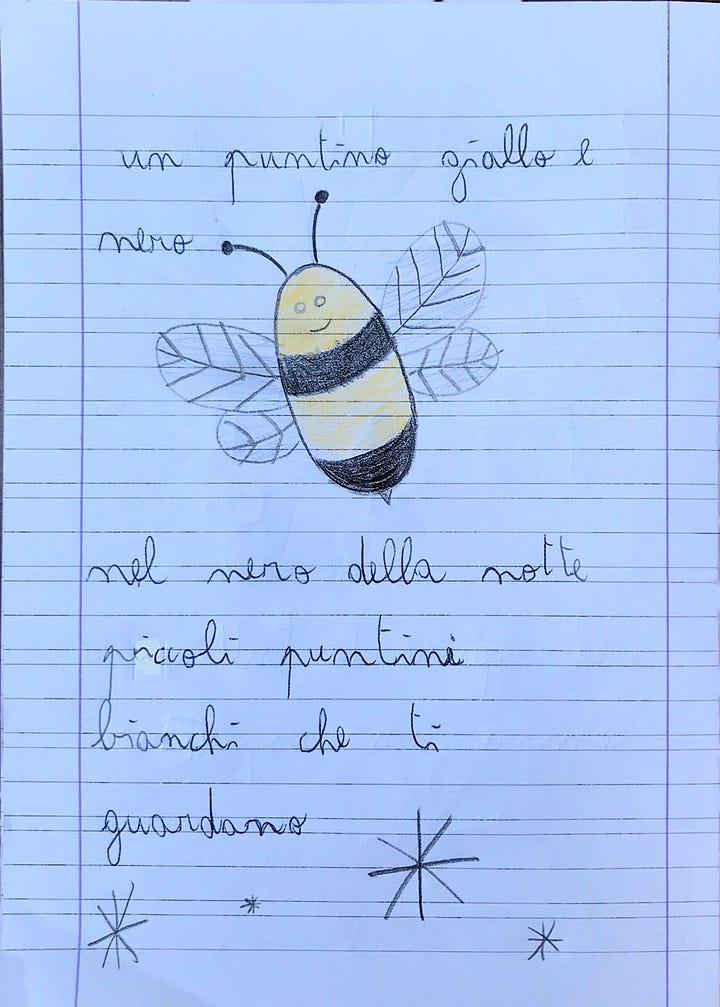 un puntino giallo e
nero
nel nero della notte
piccoli puntini
bianchi che ti
guardano